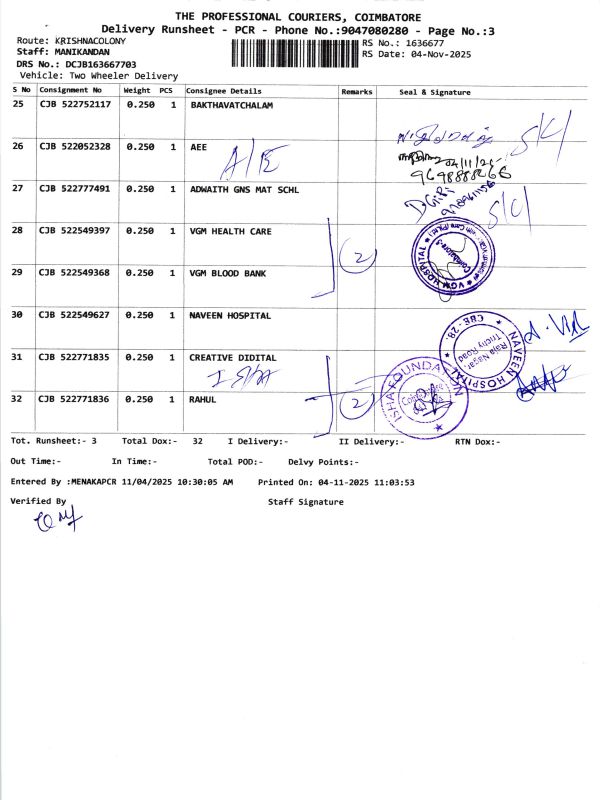 THE PROFESSIONAL COURIERS, COIMBATORE
Delivery Runsheet - PCR - Phone No.:9047080280 - Page No.:3
Route: KRISHNACOLONY
RS No.: 1636677
Staff: MANIKANDAN
RS Date: 04-Nov-2025
DRS No.: DCJB163667703
Vehicle: Two Wheeler Delivery
S No Consignment No Weight PCS Consignee Details Remarks Seal & Signature
25 CJB 522752117 0.250 1 BAKTHAVATCHALAM
26 CJB 522052328 0.250 1 AEE
A/E
04/11/25
9698888266
27 CJB 522777491 0.250 1 ADWAITH GNS MAT SCHL
S/C/
28 CJB 522549397 0.250 1 VGM HEALTH CARE
2
VGM HOSPITAL
Coimbatore-5
29 CJB 522549368 0.250 1 VGM BLOOD BANK
30 CJB 522549627 0.250 1 NAVEEN HOSPITAL
NAVEEN HOSPITAL
Raja Nagar,
Trichy Road
CBE - 28.
31 CJB 522771835 0.250 1 CREATIVE DIDITAL
ISHA
ISHA FOUNDATION
32 CJB 522771836 0.250 1 RAHUL
2
Tot. Runsheet:- 3 Total Dox:- 32 I Delivery:- II Delivery:- RTN Dox:-
Out Time:- In Time:- Total POD:- Delvy Points:-
Entered By :MENAKAPCR 11/04/2025 10:30:05 AM Printed On: 04-11-2025 11:03:53
Verified By Staff Signature